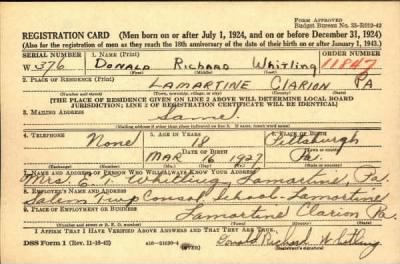 FORM APPROVED
Budget Bureau No. 33-R012-42
REGISTRATION CARD (Men born on or after July 1, 1924, and on or before December 31, 1924)
(Also for the registration of men as they reach the 18th anniversary of the date of their birth on or after January 1, 1943.)
SERIAL NUMBER 1. NAME (Print) ORDER NUMBER
W 376 DONALD RICHARD Whitling 11847
(First) (Middle) (Last)
2. PLACE OF RESIDENCE (Print)
LAMARTINE CLARION PA
(Number and street) (Town, township, village, or city) (County) (State)
[THE PLACE OF RESIDENCE GIVEN ON LINE 2 ABOVE WILL DETERMINE LOCAL BOARD
JURISDICTION; LINE 2 OF REGISTRATION CERTIFICATE WILL BE IDENTICAL]
3. MAILING ADDRESS
Same
(Mailing address if other than place indicated on line 2. If same, insert word same)
4. TELEPHONE 5. AGE IN YEARS 6. PLACE OF BIRTH
None 18 Pittsburgh
DATE OF BIRTH
MAR 16 1927 Pa.
(Exchange) (Number) (Mo.) (Day) (Yr.) (State or country)
7. NAME AND ADDRESS OF PERSON WHO WILL ALWAYS KNOW YOUR ADDRESS
Mrs. Whitling, Lamartine, Pa.
8. EMPLOYER'S NAME AND ADDRESS
Salem Twp Consol. School - Lamartine
9. PLACE OF EMPLOYMENT OR BUSINESS
Lamartine Clarion Pa.
(Number and street or R. F. D. number) (Town) (County) (State)
I AFFIRM THAT I HAVE VERIFIED ABOVE ANSWERS AND THAT THEY ARE TRUE.
DSS Form 1 (Rev. 11-16-42) (OVER) Donald Richard Whitling